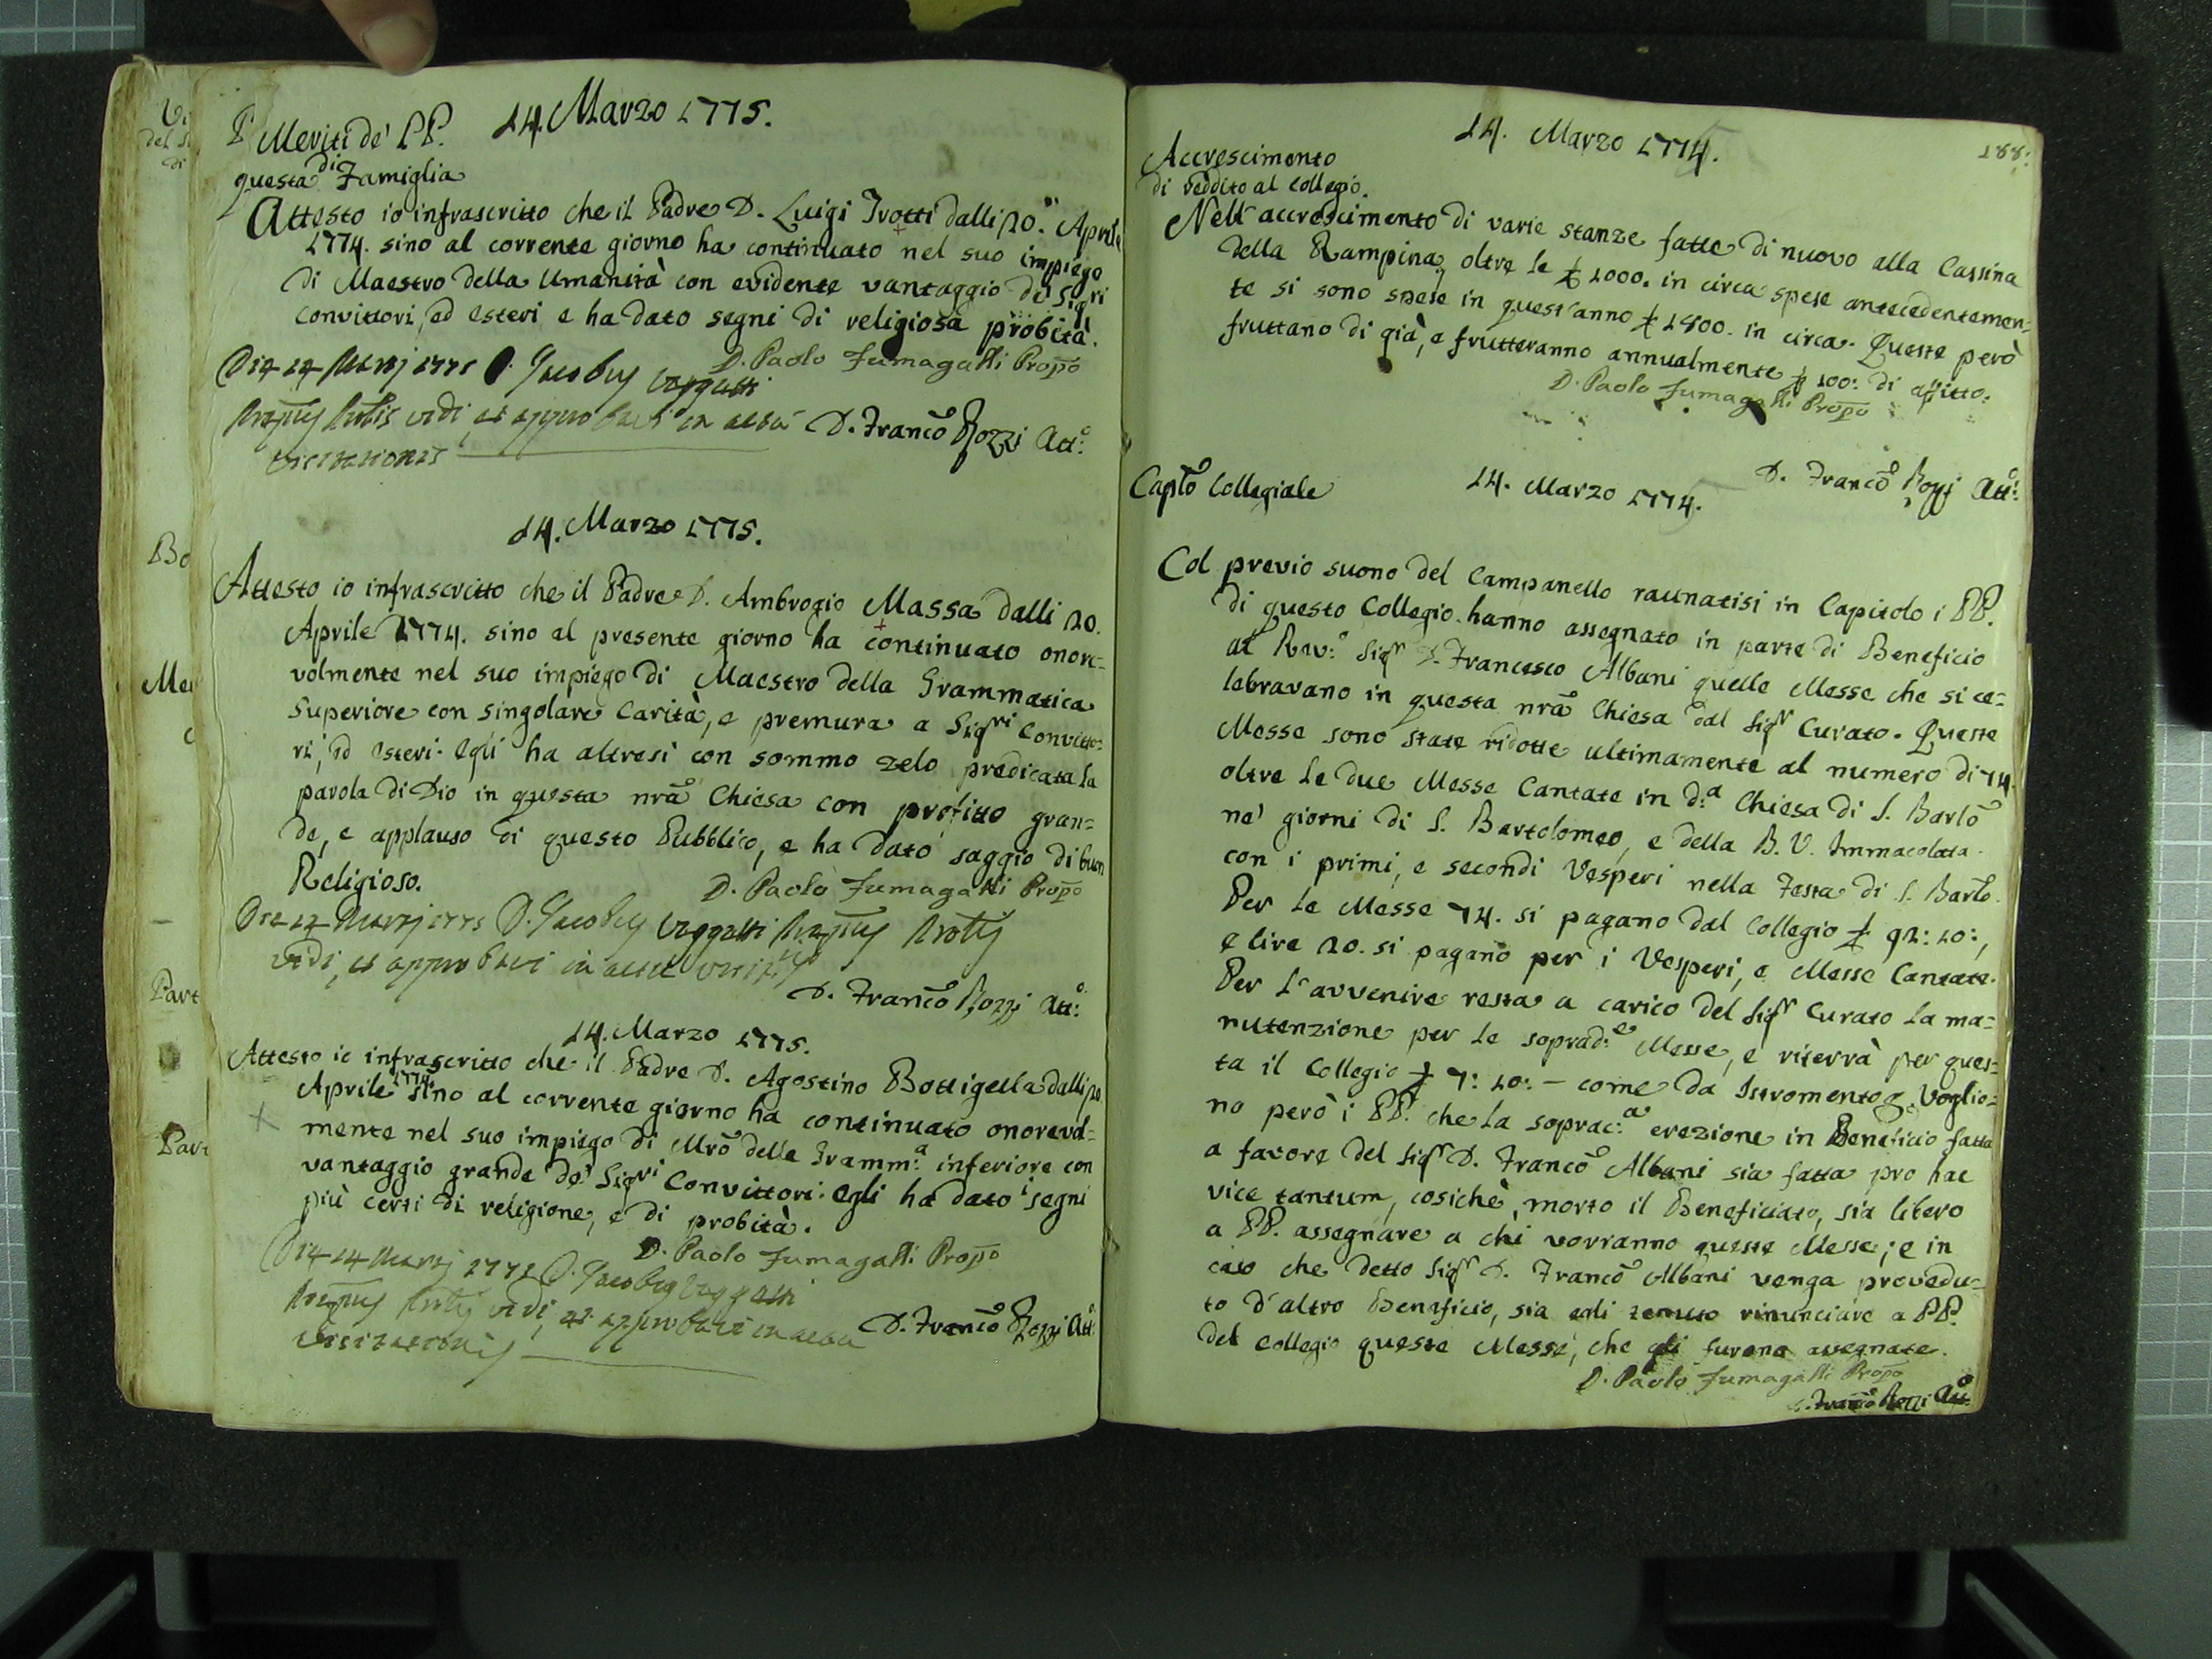 Meriti de' PP. 14. Marzo 1775.
di
questa Famiglia
Attesto io infrascritto che il Padre D. Luigi Trotti dalli 20. Aprile
1774. sino al corrente giorno ha continuato nel suo impiego
di Maestro della Umanità con evidente vantaggio de' Sigri
Convittori, ed esteri e ha dato segni di religiosa probità.
D. Paolo Fumagalli Propo
Die 14 Martij 1775 D. Jacobus Voggatti
vidi, et approbavi in actu D. Franco Rozzi Atto:
visitationis
14. Marzo 1775.
Attesto io infrascritto che il Padre D. Ambrogio Massa dalli 20.
Aprile 1774. sino al presente giorno ha continuato onore=
volmente nel suo impiego di Maestro della Grammatica
Superiore con singolare Carità, e premura a Sigri Convitto=
ri, ed esteri. Egli ha altresi con sommo zelo predicata la
parola di Dio in questa nrã Chiesa con profitto gran=
de, e applauso di questo Pubblico, e ha dato saggio di buon
Religioso. D. Paolo Fumagalli Propo
Die 14 Martij 1775 D. Jacobus Voggatti
vidi, et approbavi in actu
D. Franco Rozzi Atto:
14. Marzo 1775.
Attesto io infrascritto che il Padre D. Agostino Bottigella dalli 20
Aprile 1774. sino al corrente giorno ha continuato onorevol=
mente nel suo impiego di Mro delle Gramm:a inferiore con
vantaggio grande de' Sigri Convittori. Egli ha dato i segni
più certi di religione, e di probità.
D. Paolo Fumagalli Propo
Die 14 Martij 1775 D. Jacobus Voggatti
vidi, et approbavi in actu D. Franco Rozzi Atto:
visitationis
188.
14. Marzo 1775.
Accrescimento
di reddito al Collegio.
Nell'accrescimento di varie stanze fatte di nuovo alla Cassina
della Rampina oltre le £ 1000. in circa spese antecedentemen=
te si sono spese in quest'anno £ 1800. in circa. Queste però
fruttano di già, e frutteranno annualmente £ 100: di affitto.
D. Paolo Fumagalli Propo
D. Franco Rozzi Atto:
Caplo Collegiale 14. Marzo 1775.
Col previo suono del Campanello raunatisi in Capitolo i PP.
di questo Collegio hanno assegnato in parte di Beneficio
al Rev:o Sigr D. Francesco Albani quelle Messe che si ce=
lebravano in questa nrã Chiesa dal Sigr Curato. Queste
Messe sono state ridotte ultimamente al numero di 74.
oltre le due Messe Cantate in d:a Chiesa di S. Barlo
ne' giorni di S. Bartolomeo, e della B. V. Immacolata
con i primi, e secondi Vesperi nella Festa di S. Barto.
Per le Messe 74. si pagano dal Collegio £ 92: 10:,
e lire 20. si pagano per i Vesperi, e Messe Cantate.
Per l'avvenire resta a carico del Sigr Curato la ma=
nutenzione per le soprad:e Messe, e riterrà per ques=
ta il Collegio £ 7: 10: – come da Istromento &. Voglio=
no però i PP. che la soprac:a erezione in Beneficio fatta
a favore del Sigr D. Franco Albani sia fatta pro hac
vice tantum, cosichè, morto il Beneficiato, sia libero
a PP. assegnare a chi vorranno queste Messe; e in
caso che detto Sigr D. Franco Albani venga provedu=
to d'altro Beneficio, sia egli tenuto rinunciare a PP.
del Collegio queste Messe, che gli furono assegnate.
D. Paolo Fumagalli Propo
D. Franco Rozzi Atto: